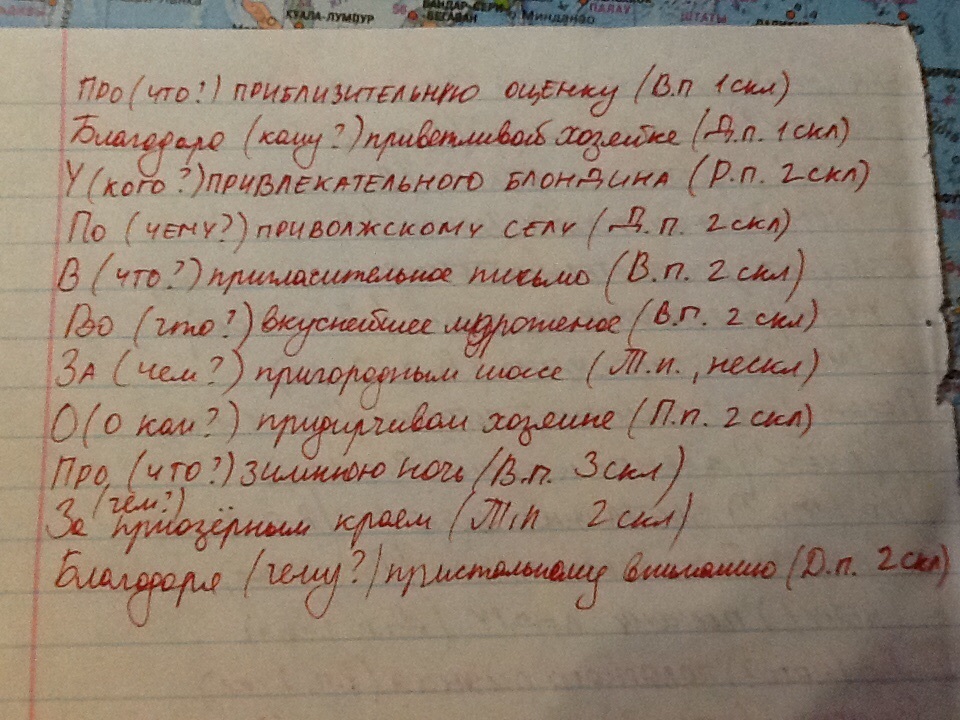 КУАЛА-ЛУМПУР
БАНДАР-СЕРИ-
БЕГАВАН
Минданао
ПАЛАУ
ШТАТЫ
Про (что?) приблизительную оценку (В.п 1 скл)
Благодаря (кому?) приветливой хозяйке (Д.п. 1 скл)
У (кого?) привлекательного блондина (Р.п. 2 скл)
По (чему?) приволжскому селу (Д.п. 2 скл)
В (что?) пригласительное письмо (В.п. 2 скл)
Во (что?) вкуснейшее мороженое (В.п. 2 скл)
За (чем?) пригородным шоссе (Т.п., нескл)
О (о ком?) придирчивом хозяине (П.п. 2 скл)
Про (что?) зимнюю ночь (В.п. 3 скл)
За (чем?) приозёрным краем (Т.п 2 скл)
Благодаря (чему?) пристальному вниманию (Д.п. 2 скл)